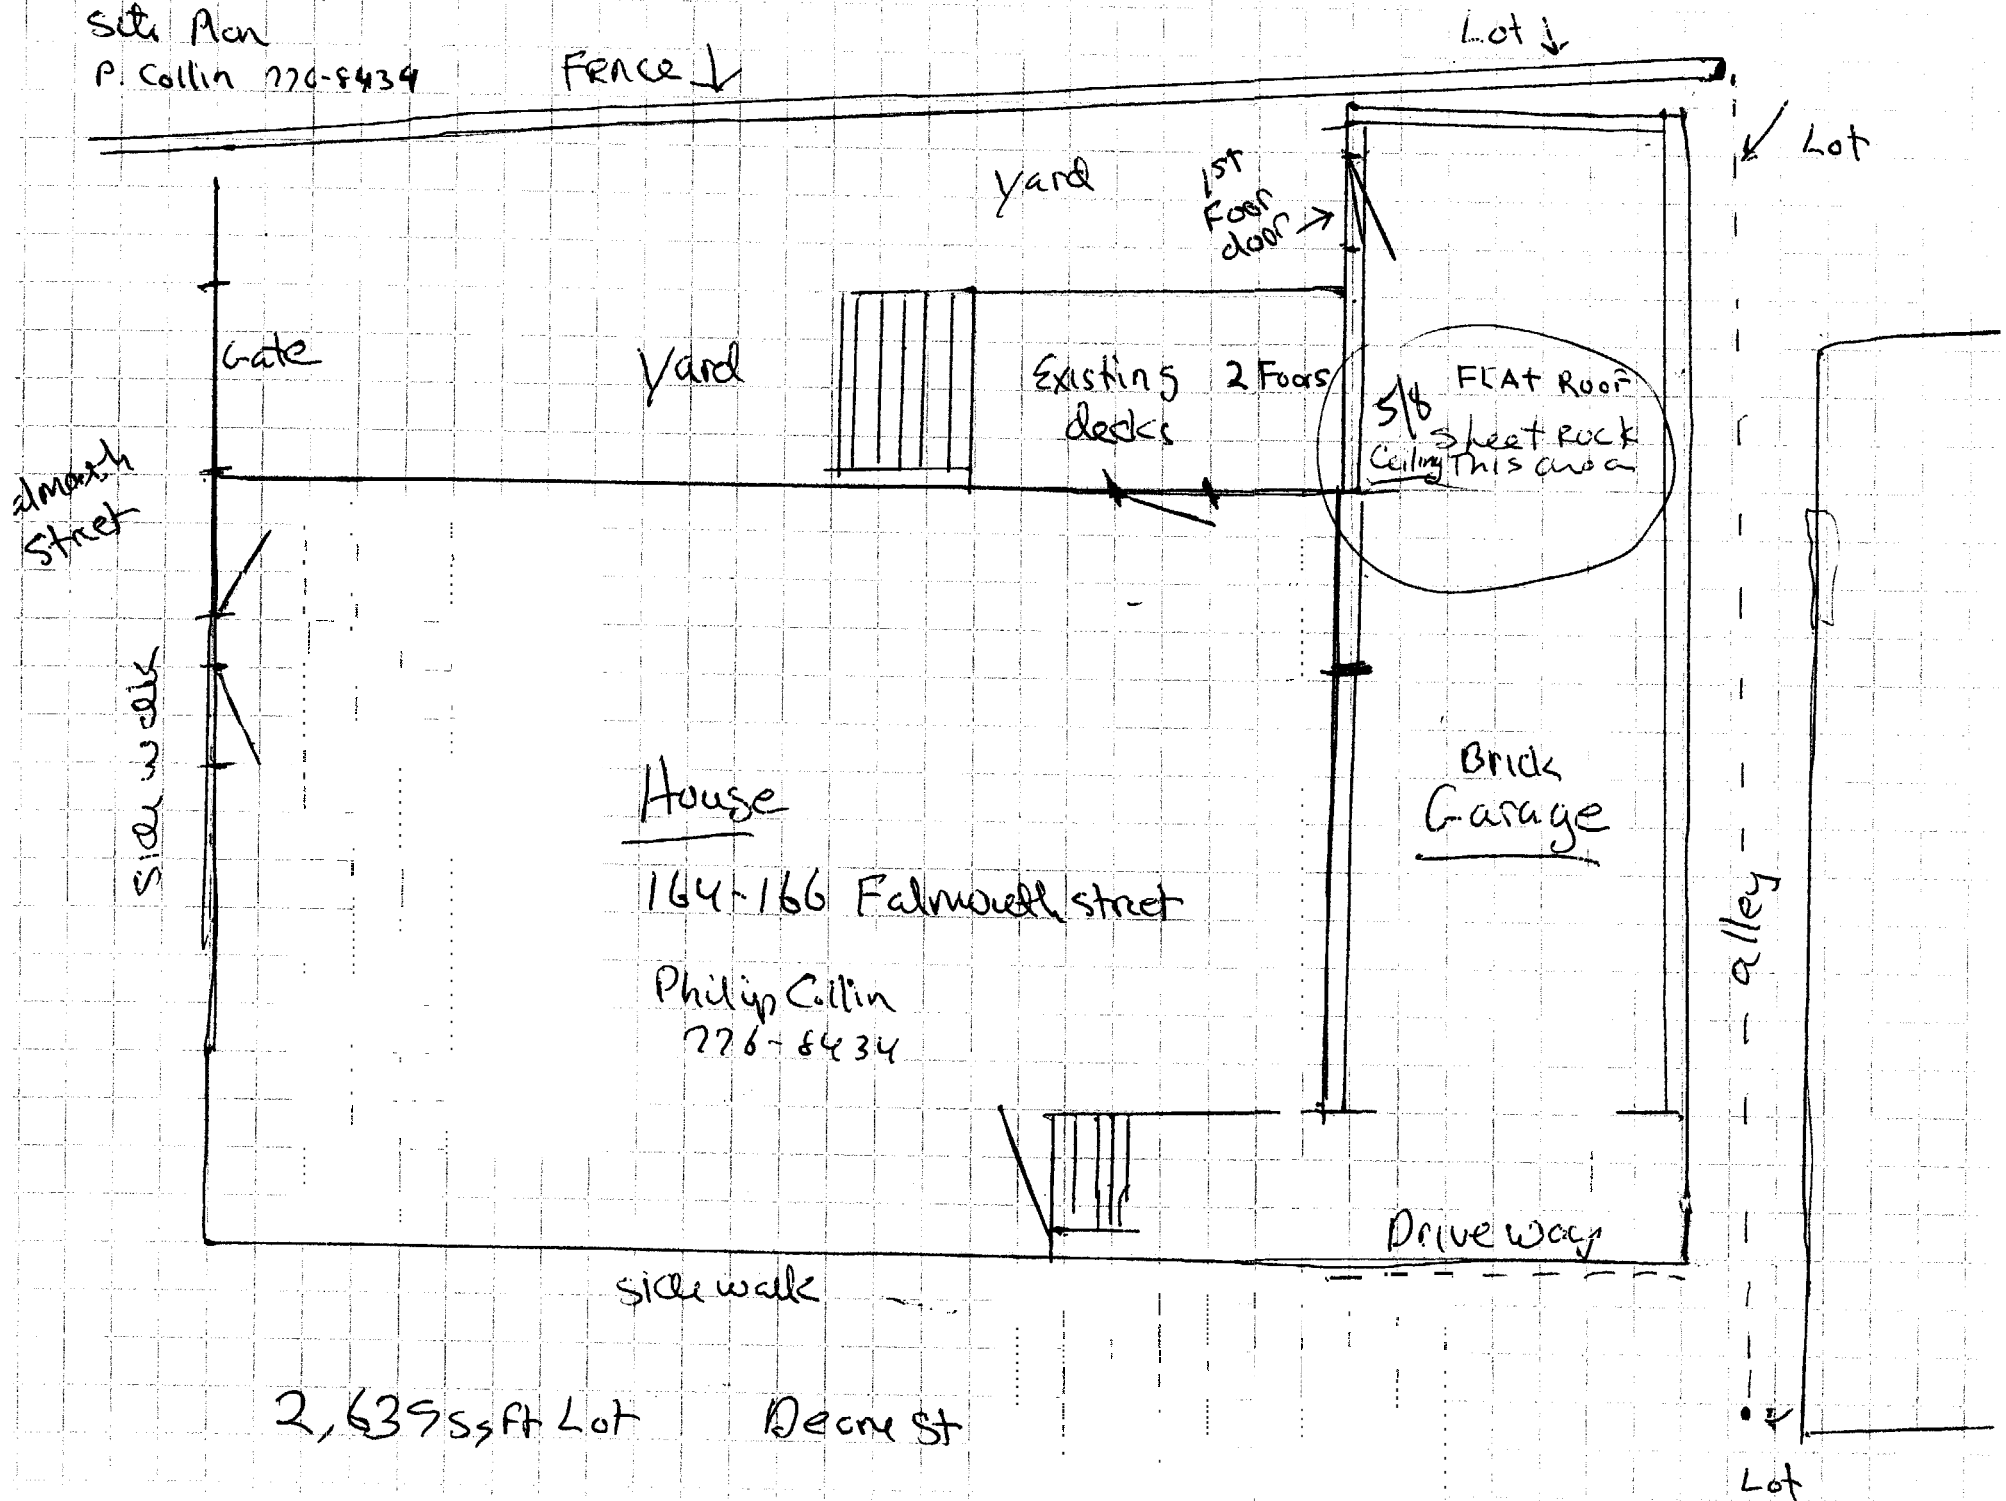 Site Plan
P. Collin 776-8434
Fence
Lot
Lot
yard
1st
Foor
door
Gate
Yard
Existing 2 Foors
decks
FLAt Roof
5/8 Sheet Rock
Ceiling This area
Street
Side walk
House
164-166 Falmouth street
Philip Collin
776-8434
Brick
Garage
alley
Drive way
side walk
2,639 Sq ft Lot
St
Lot